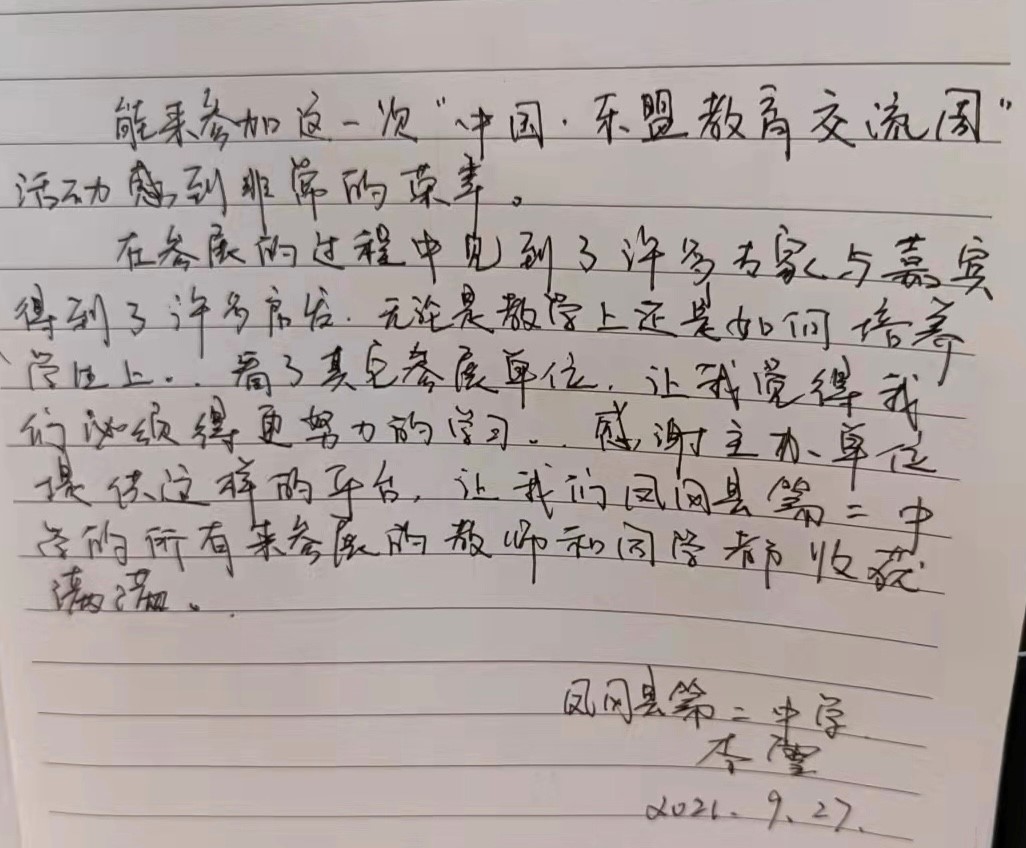 能来参加这一次“中国·东盟教育交流周”
活动感到非常的荣幸。
在参展的过程中见到了许多专家与嘉宾
得到了许多启发.无论是教学上还是如何培养
学生上..看了其它参展单位.让我觉得我
们必须得更努力的学习..感谢主办单位
提供这样的平台,让我们凤冈县第二中
学的所有来参展的教师和同学都收获
满满。
凤冈县第二中学
李
2021.9.27.